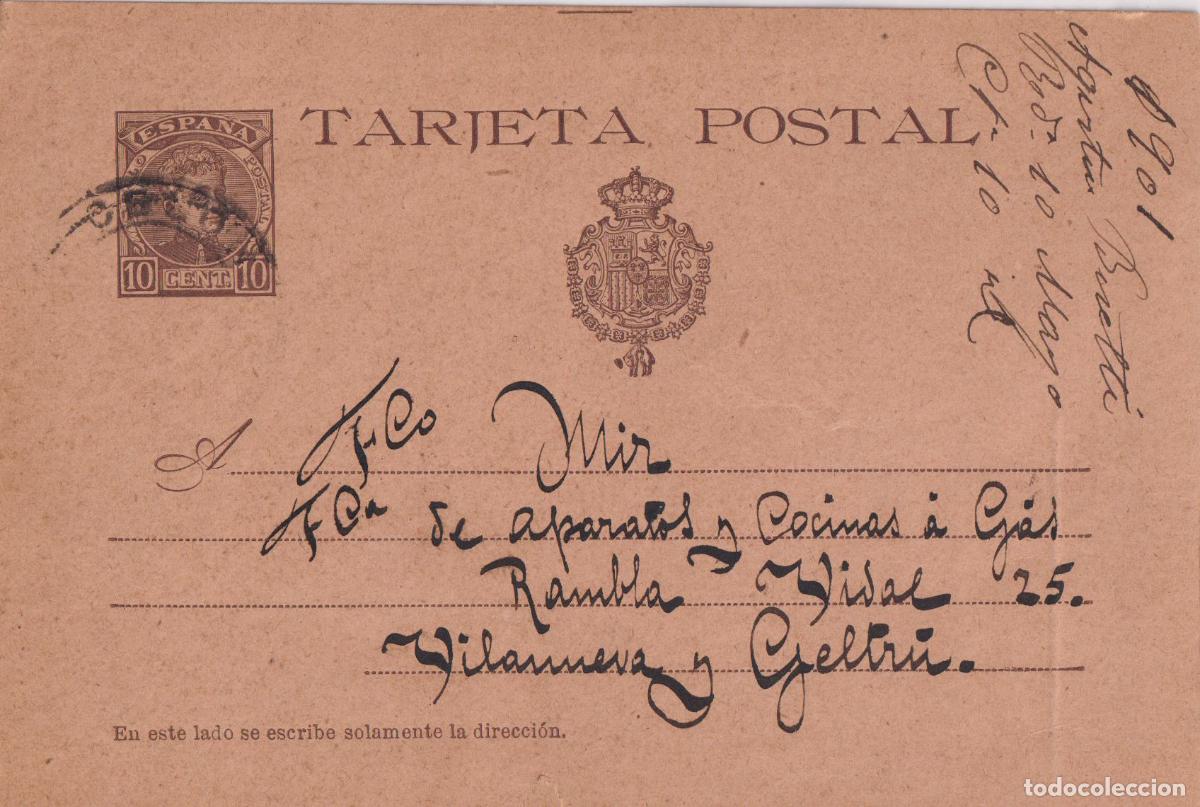 TARJETA POSTAL
ESPAÑA
POSTAL
10 CENT. 10
1901
Agustin
Bod- 10 Mayo
Ct- 10 id
A FCo Mir
FCa de aparatos y Cocinas á Gás
Rambla Vidal 25.
Vilanueva y Geltrú.
En este lado se escribe solamente la dirección.
todocoleccion